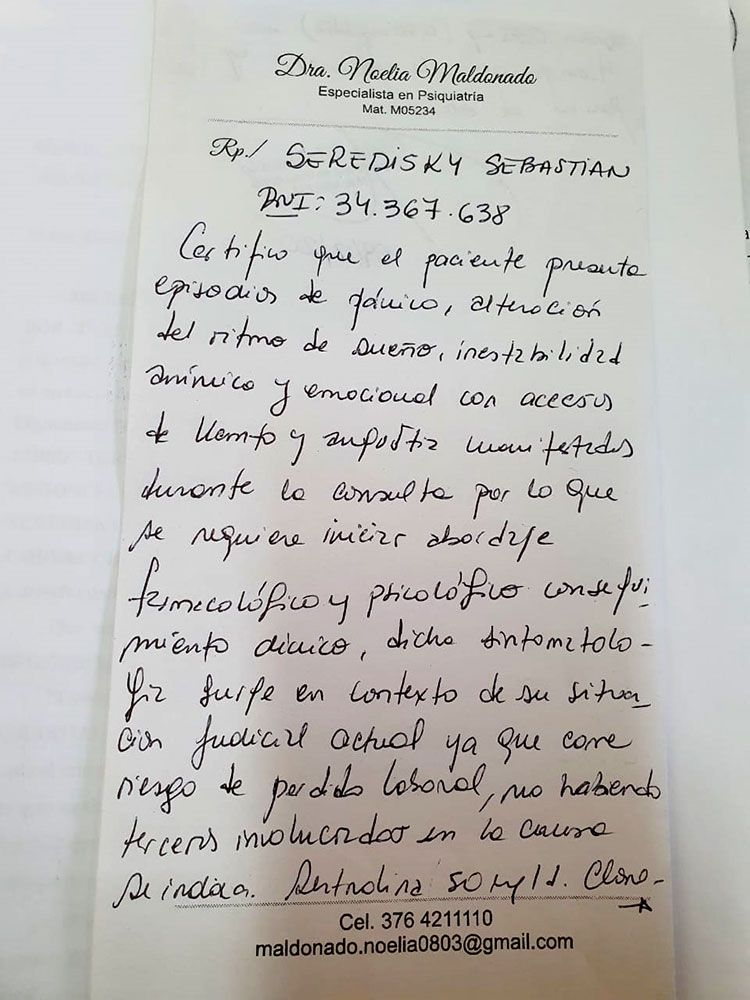 Dra. Noelia Maldonado
Especialista en Psiquiatría
Mat. M05234
Rp./ SEREDISKY SEBASTIAN
DNI: 34.367.638
Certifico que el paciente presenta
episodios de pánico, alteración
del ritmo de sueño, inestabilidad
anímica y emocional con accesos
de llanto y angustia manifestados
durante la consulta por lo que
se requiere iniciar abordaje
farmacológico y psicológico con segui-
miento clínico, dicha sintomatolo-
gia surge en contexto de su situa
cion judicial actual ya que corre
riesgo de perdida laboral, no habiendo
terceros involucrados en la causa
Se indica. Sertralina 50 mg/d. Clona-
Cel. 376 4211110
maldonado.noelia0803@gmail.com